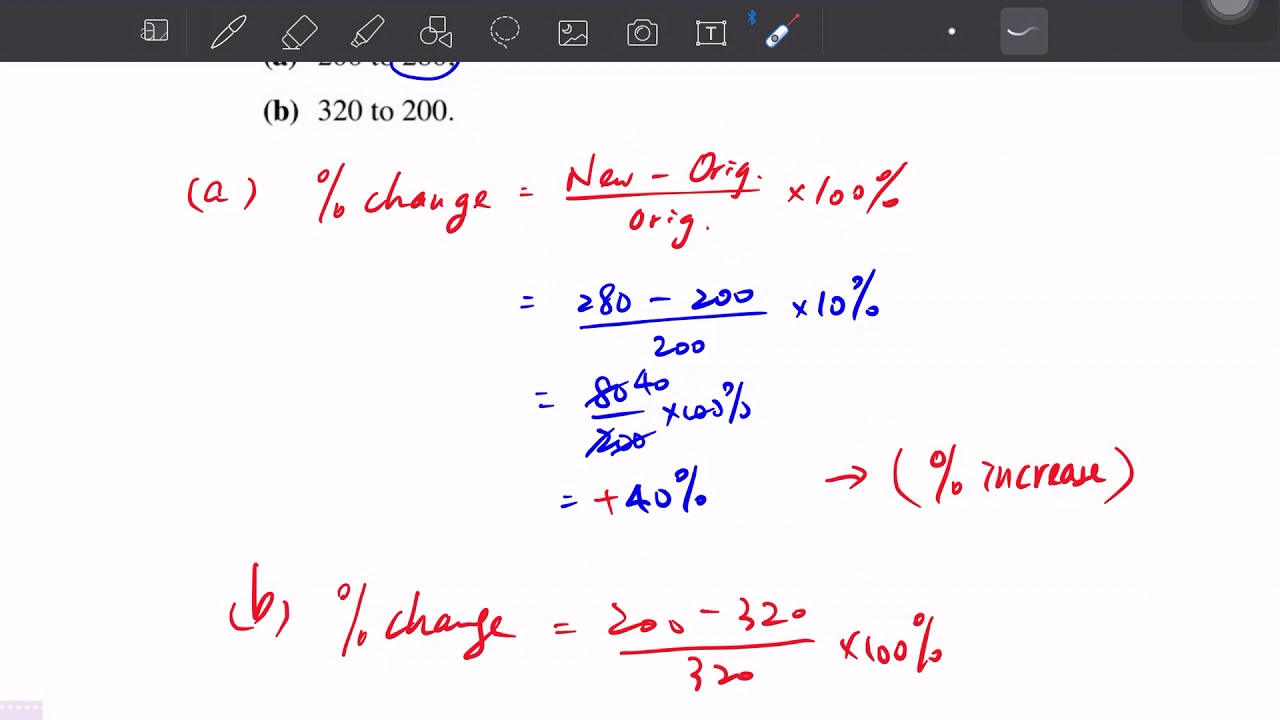 (b) 320 to 200.
(a) % change = New - Orig. / Orig. × 100%
= 280 - 200 / 200 × 10%
= 80 40 / 200 × 100%
= + 40% → (% increase)
(b) % change = 200 - 320 / 320 × 100%